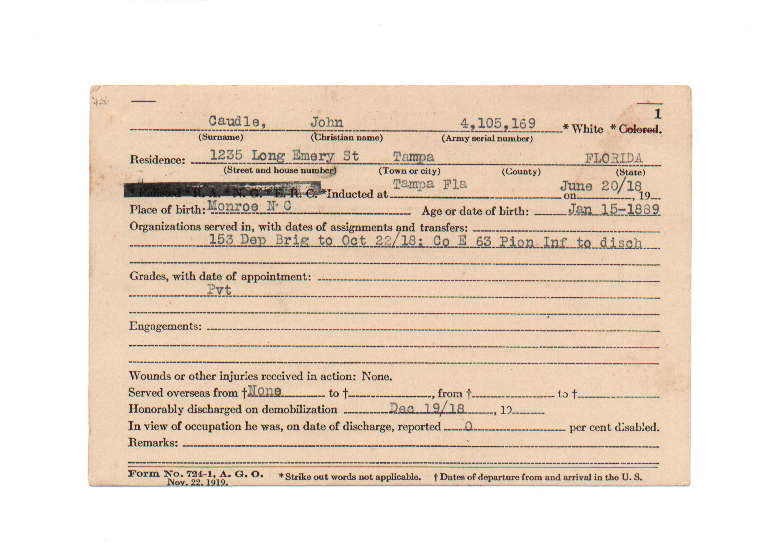 1
Caudle, John 4,105,169 * White * Colored.
(Surname) (Christian name) (Army serial number)
Residence: 1235 Long Emery St Tampa FLORIDA
(Street and house number) (Town or city) (County) (State)
*Inducted at Tampa Fla on June 20/18, 19
Place of birth: Monroe N C Age or date of birth: Jan 15-1889
Organizations served in, with dates of assignments and transfers:
153 Dep Brig to Oct 22/18; Co E 63 Pion Inf to disch
Grades, with date of appointment:
Pvt
Engagements:
Wounds or other injuries received in action: None.
Served overseas from †None to †, from † to †
Honorably discharged on demobilization Dec 19/18, 19
In view of occupation he was, on date of discharge, reported 0 per cent disabled.
Remarks:
Form No. 724-1, A. G. O. *Strike out words not applicable. † Dates of departure from and arrival in the U. S.
Nov. 22, 1919.